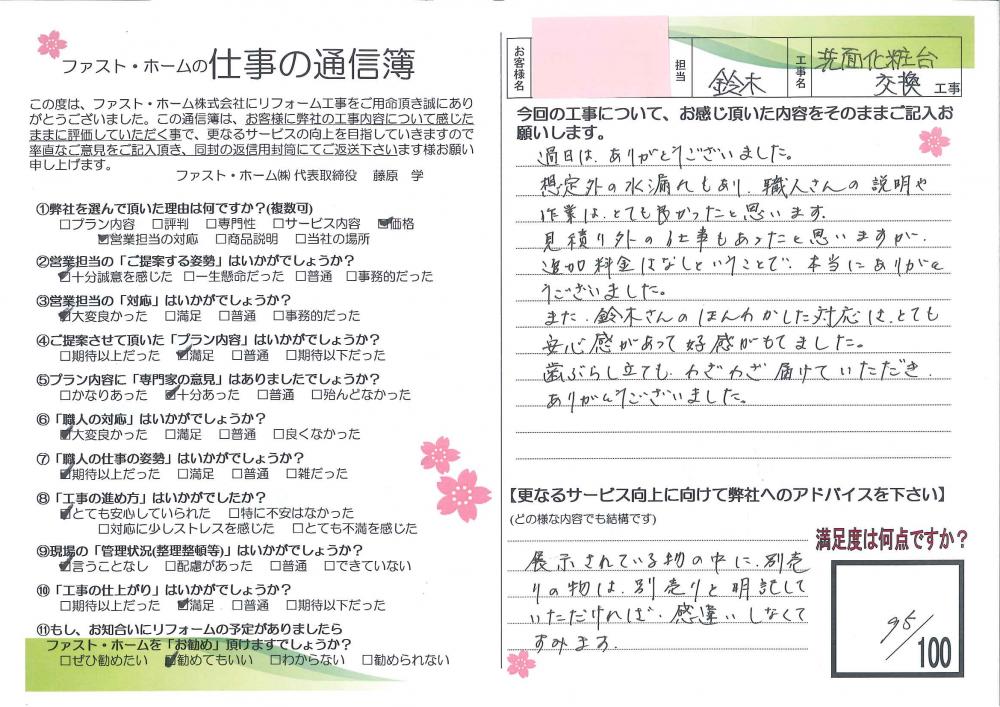 ファスト・ホームの仕事の通信簿
この度は、ファスト・ホーム株式会社にリフォーム工事をご用命頂き誠にあり
がとうございました。この通信簿は、お客様に弊社の工事内容について感じた
ままに評価していただく事で、更なるサービスの向上を目指していきますので
率直なご意見をご記入頂き、同封の返信用封筒にてご返送下さいます様お願い
申し上げます。
ファスト・ホーム㈱ 代表取締役 藤原 学
①弊社を選んで頂いた理由は何ですか?(複数可)
□プラン内容 □評判 □専門性 □サービス内容 ☑価格
☑営業担当の対応 □商品説明 □当社の場所
②営業担当の「ご提案する姿勢」はいかがでしょうか?
☑十分誠意を感じた □一生懸命だった □普通 □事務的だった
③営業担当の「対応」はいかがでしょうか?
☑大変良かった □満足 □普通 □事務的だった
④ご提案させて頂いた「プラン内容」はいかがでしょうか?
□期待以上だった ☑満足 □普通 □期待以下だった
⑤プラン内容に「専門家の意見」はありましたでしょうか?
□かなりあった ☑十分あった □普通 □殆んどなかった
⑥「職人の対応」はいかがでしょうか?
☑大変良かった □満足 □普通 □良くなかった
⑦「職人の仕事の姿勢」はいかがでしょうか?
☑期待以上だった □満足 □普通 □雑だった
⑧「工事の進め方」はいかがでしたか?
☑とても安心していられた □特に不安はなかった
□対応に少しストレスを感じた □とても不満を感じた
⑨現場の「管理状況(整理整頓等)」はいかがでしょうか?
☑言うことなし □配慮があった □普通 □できていない
⑩「工事の仕上がり」はいかがでしょうか?
□期待以上だった ☑満足 □普通 □期待以下だった
⑪もし、お知合いにリフォームの予定がありましたら
ファスト・ホームを「お勧め」頂けますでしょうか?
□ぜひ勧めたい ☑勧めてもいい □わからない □勧められない
お客様名 担当 鈴木 工事名 洗面化粧台
交換 工事
今回の工事について、お感じ頂いた内容をそのままご記入お
願いします。
過日は、ありがとうございました。
想定外の水漏れもあり、職人さんの説明や
作業は、とても良かったと思います。
見積り外の仕事もあったと思いますが、
追加料金はなしということで、本当にありがと
うございました。
また、鈴木さんのほんわかした対応は、とても
安心感があって好感がもてました。
歯ぶらし立ても、わざわざ届けていただき、
ありがとうございました。
【更なるサービス向上に向けて弊社へのアドバイスを下さい】
(どの様な内容でも結構です)
満足度は何点ですか?
展示されている物の中に、別売
りの物は、別売りと明記して
いただければ、感違いしなくて
すみます。
95/100